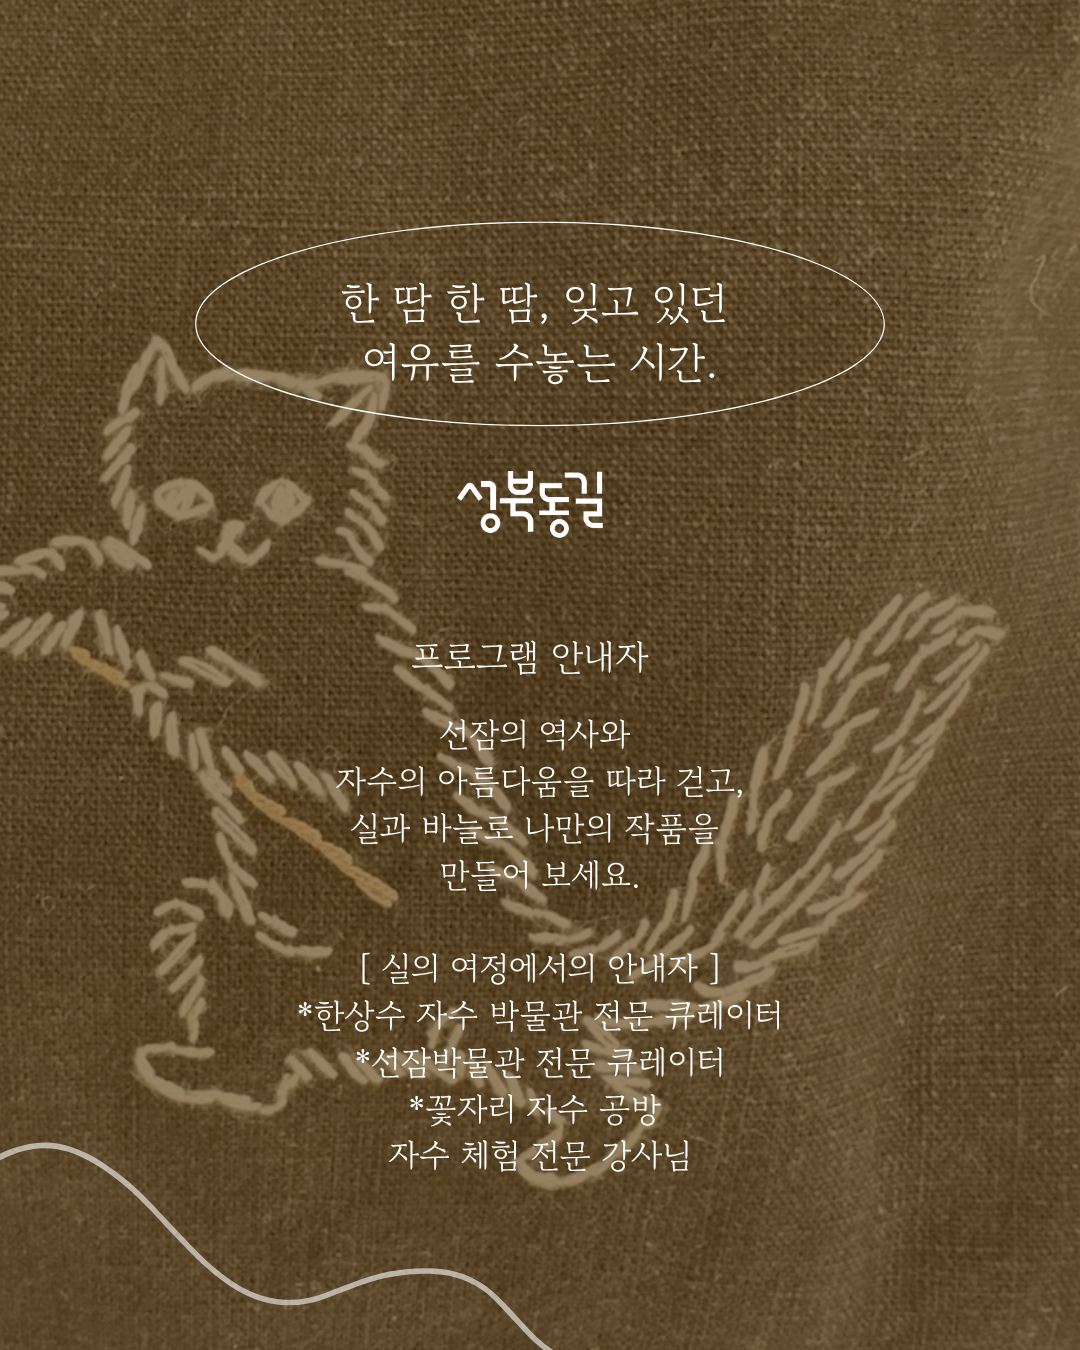 한 땀 한 땀, 잊고 있던
여유를 수놓는 시간.
성북동길
프로그램 안내자
선잠의 역사와
자수의 아름다움을 따라 걷고,
실과 바늘로 나만의 작품을
만들어 보세요.
[ 실의 여정에서의 안내자 ]
*한상수 자수 박물관 전문 큐레이터
*선잠박물관 전문 큐레이터
*꽃자리 자수 공방
자수 체험 전문 강사님